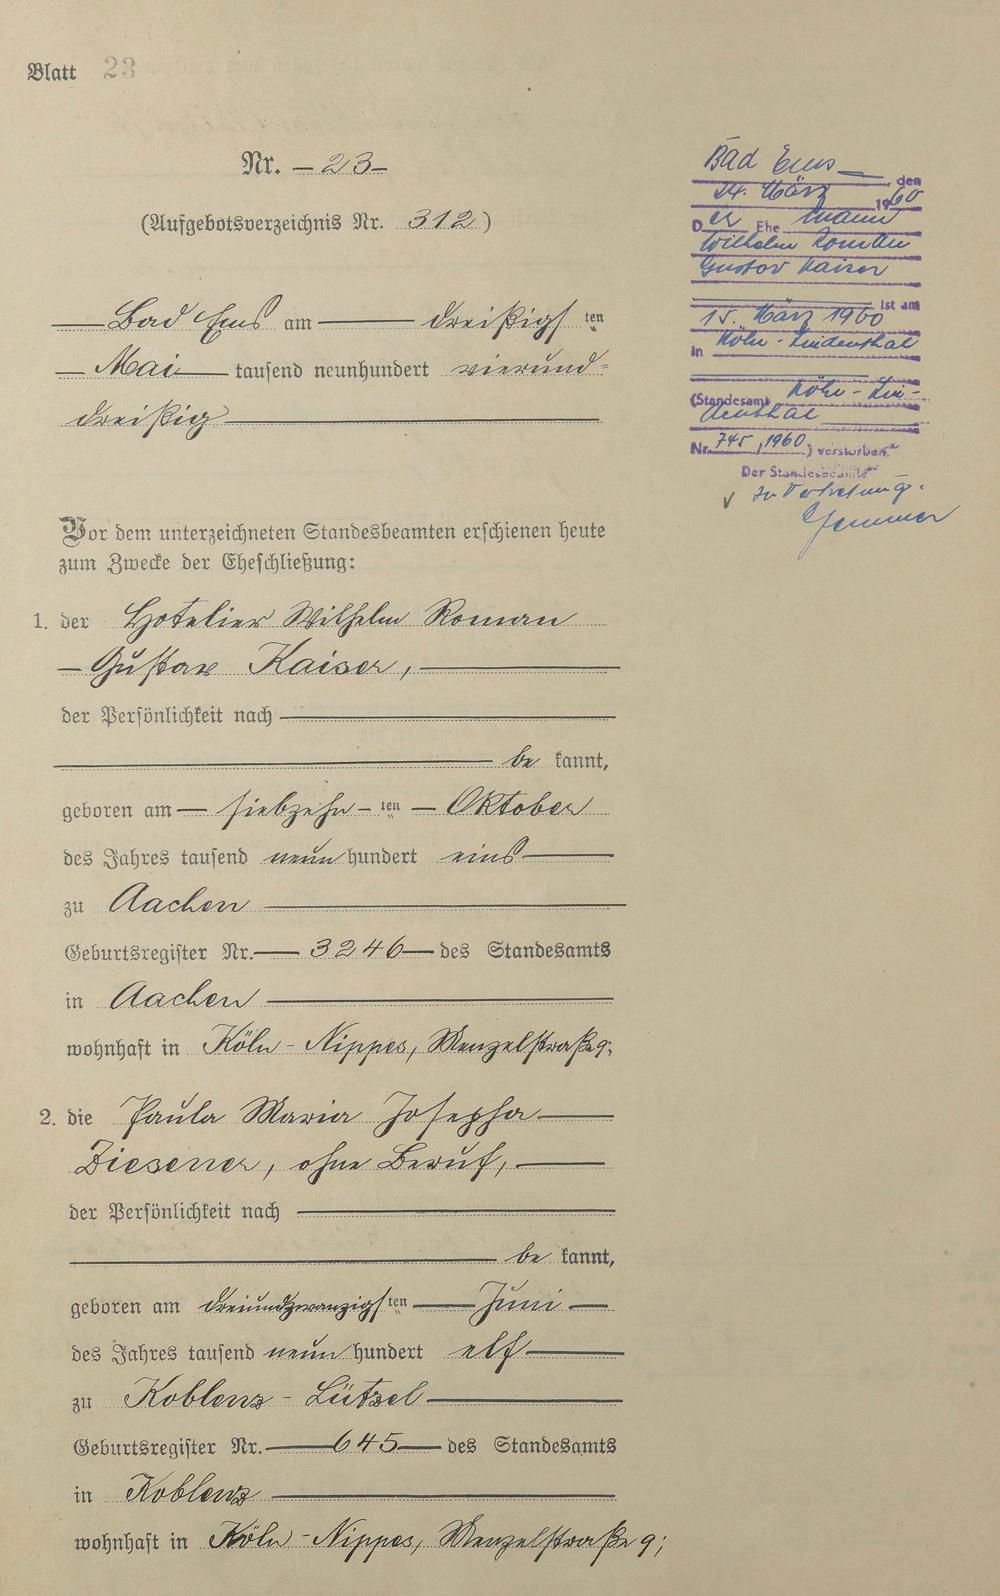 Blatt 23
Nr. – 23 –
(Aufgebotsverzeichnis Nr. 312)
Bad Ems am dreißigsten
Mai tausend neunhundert vierund-
dreißig
Vor dem unterzeichneten Standesbeamten erschienen heute
zum Zwecke der Eheschließung:
1. der Hotelier Wilhelm Roman
Gustav Kaiser,
der Persönlichkeit nach
be kannt,
geboren am siebzehn-ten Oktober
des Jahres tausend neun hundert eins
zu Aachen
Geburtsregister Nr. 3246 des Standesamts
in Aachen
wohnhaft in Köln-Nippes, Menzelstraße 9;
2. die Paula Maria Josepha
Ziesener, ohne Beruf,
der Persönlichkeit nach
be kannt,
geboren am dreiundzwanzigsten Juni
des Jahres tausend neun hundert elf
zu Koblenz-Lützel
Geburtsregister Nr. 645 des Standesamts
in Koblenz
wohnhaft in Köln-Nippes, Menzelstraße 9;
Bad Ems, den
24. März 1960
Der Ehemann
Wilhelm Roman
Gustav Kaiser
ist am
15. März 1960
in Köln-Lindenthal
(Standesamt Köln-Lin-
denthal
Nr. 745/1960) verstorben.
Der Standesbeamte
In Vertretung.